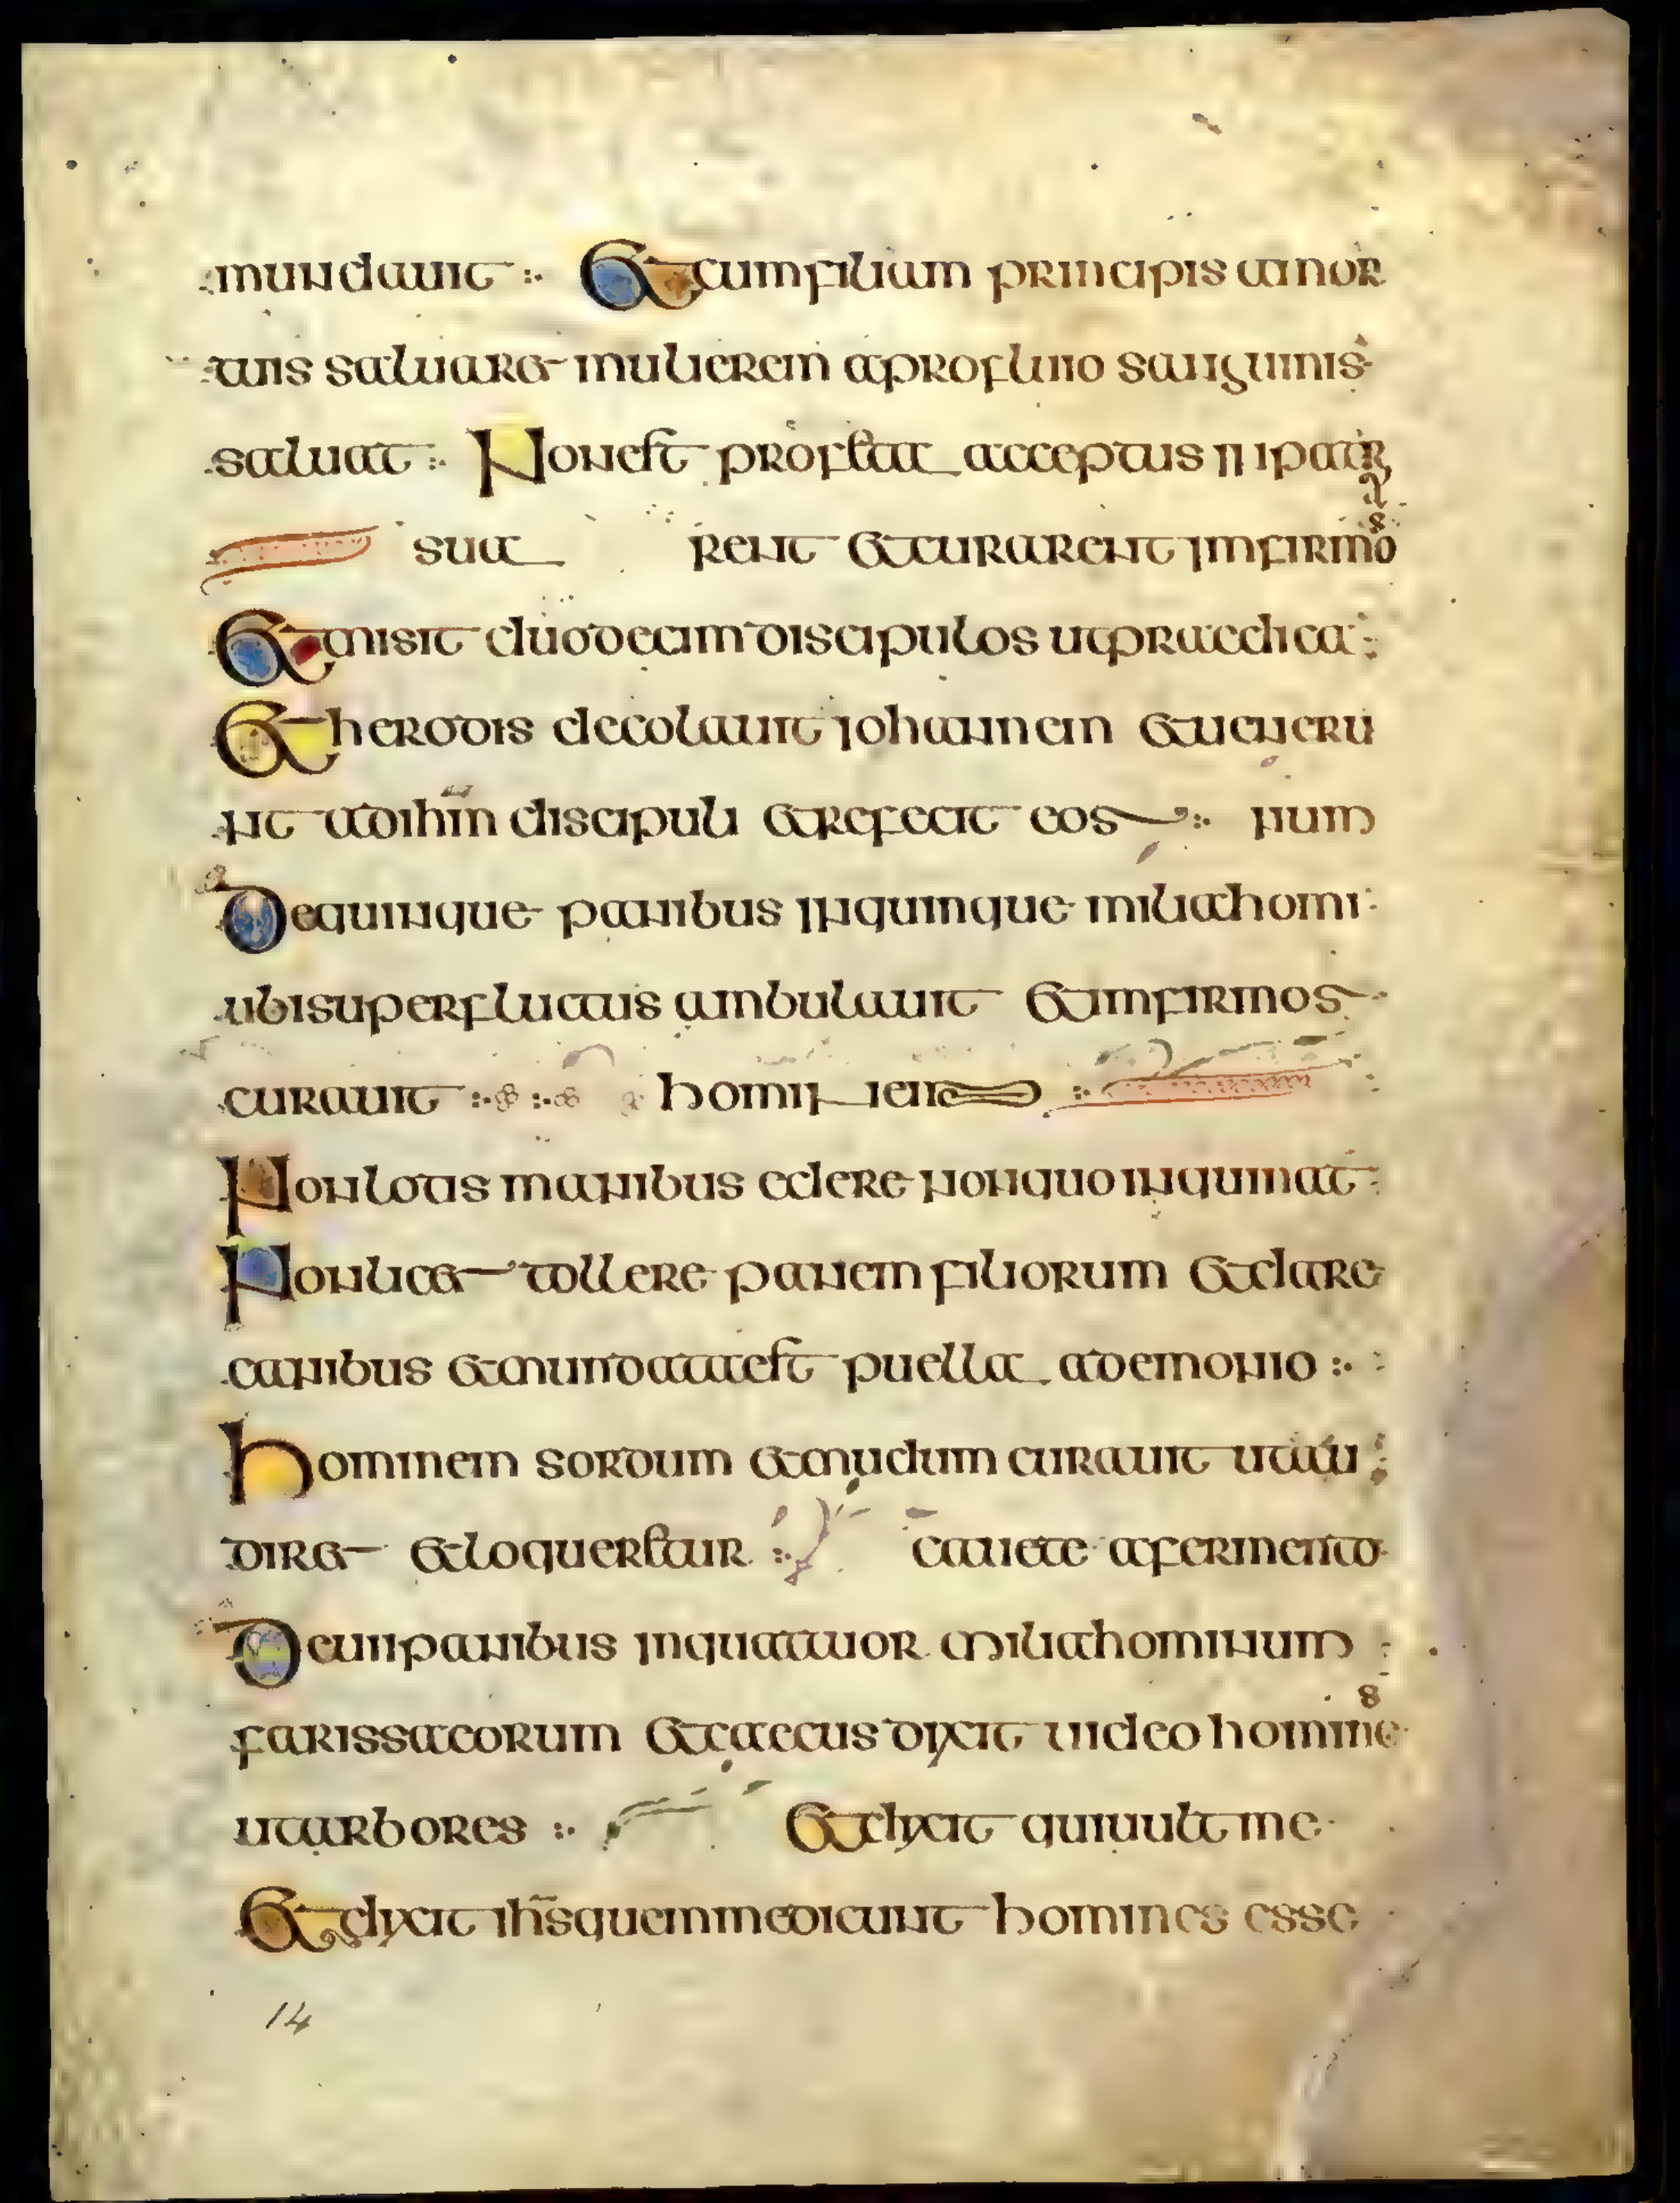 mundauit Et cum filiam principis a mor
tuis saluare mulierem a profluio sanguinis
saluat Non est profeta acceptus in patr
sua rent et curarent infirmo
Et misit duodecim discipulos ut praedica
Et herodis decolauit iohannem et ueneru
nt ad ihm discipuli et refecit eos num
De quinque panibus in quinque milia homi
ubi super fluctus ambulauit et infirmos
curauit homin ient
Non lotis manibus edere non quoinquinat
Non licet tollere panem filiorum et dare
canibus et mundata est puella a demonio
hominem sordum et mudum curauit ut au
diret et loqueretur cauete a fermento
De uii panibus in quattuor milia hominum
farissaeorum et caecus dixit uideo homine
s
ut arbores Et dixit qui uult me
Et dixit ihs quem me dicunt homines esse
14